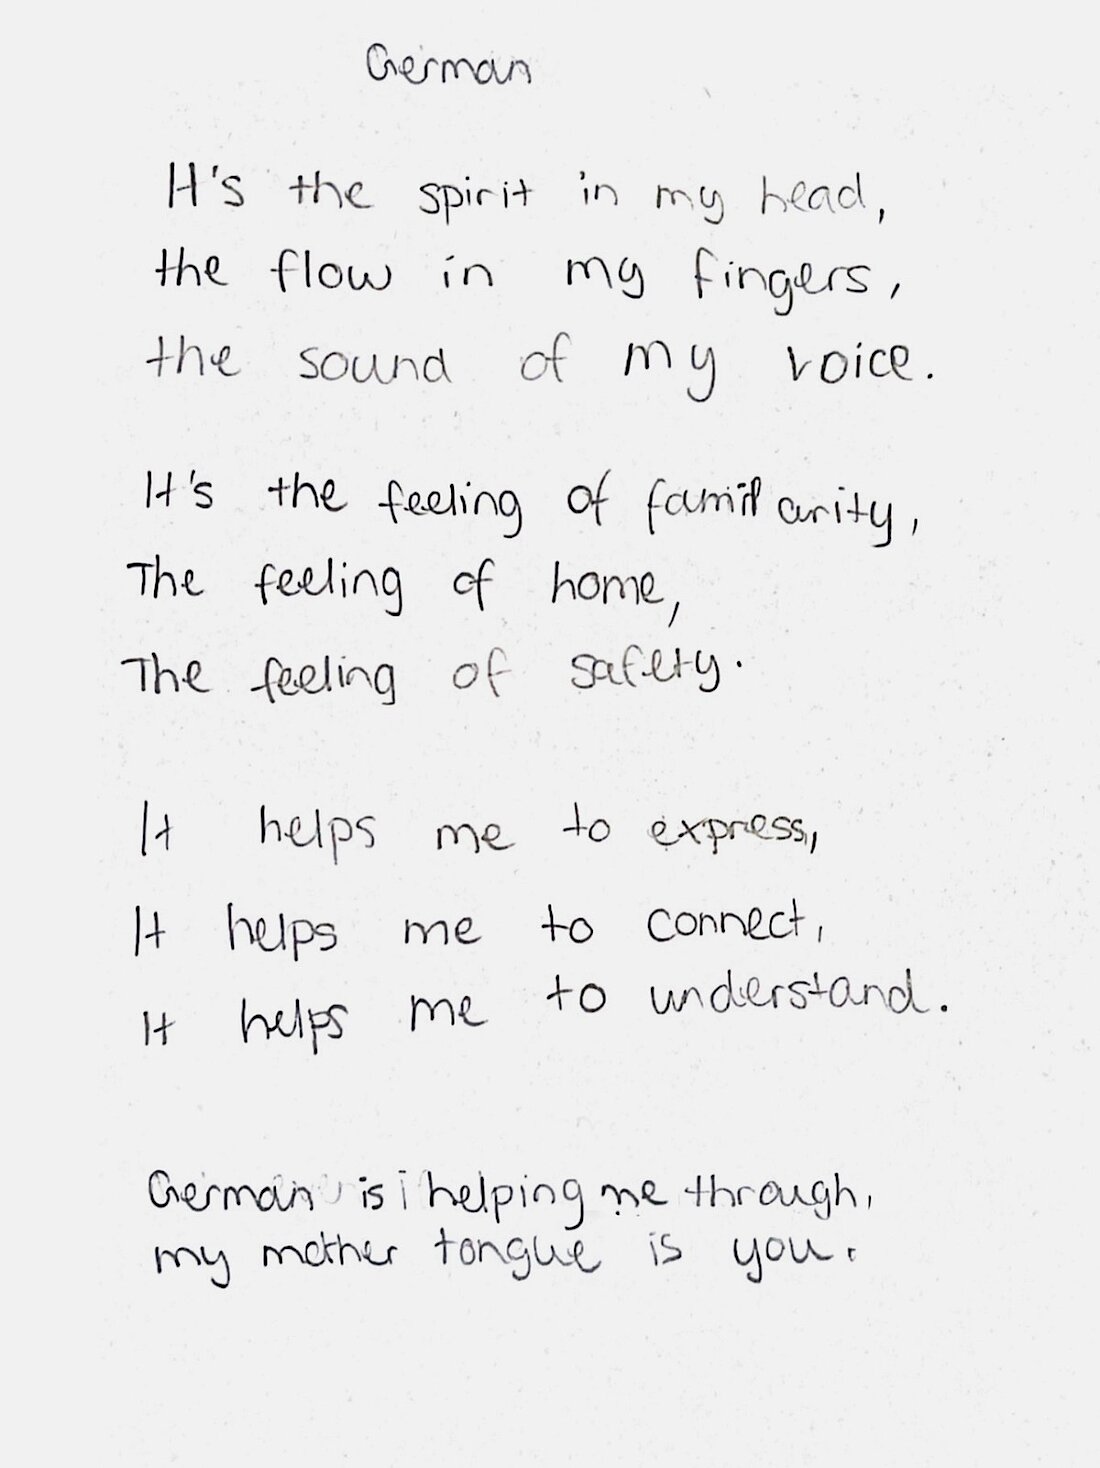 German
It's the spirit in my head,
the flow in my fingers,
the sound of my voice.
It's the feeling of familiarity,
The feeling of home,
The feeling of safety.
It helps me to express,
It helps me to connect,
It helps me to understand.
German is helping me through,
my mother tongue is you.